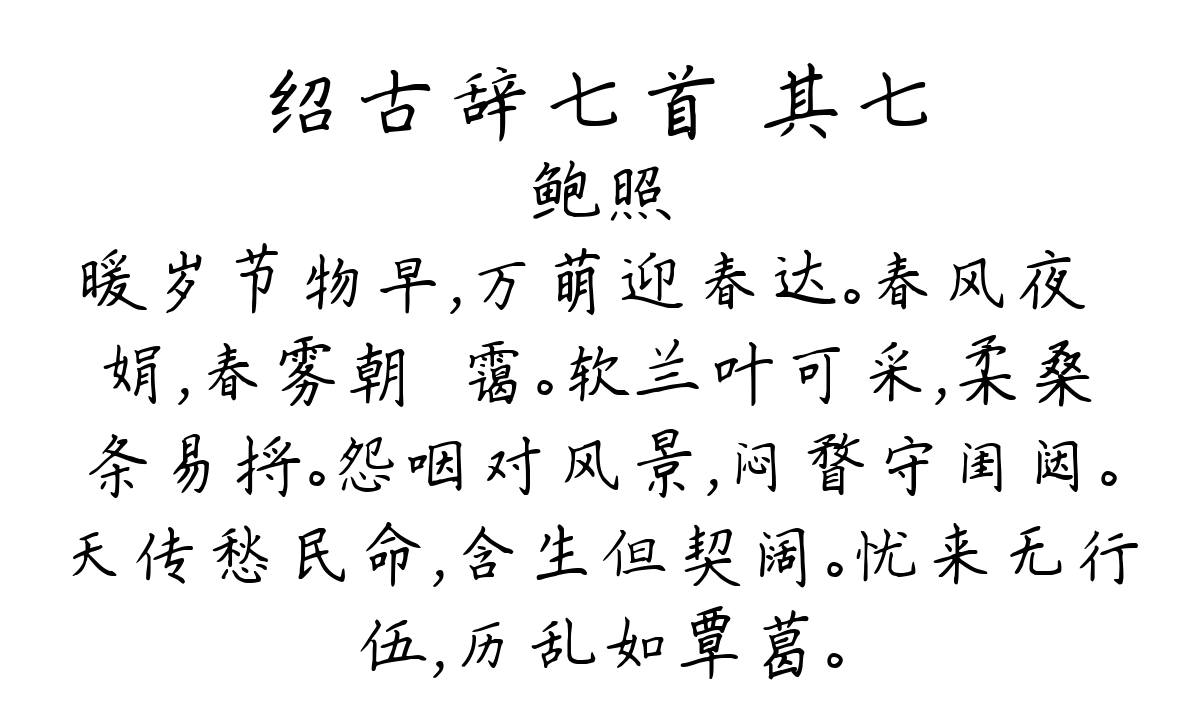 绍古辞七首 其七
鲍照
暖岁节物早,万萌迎春达。春风夜
娟,春雾朝 霭。软兰叶可采,柔桑
条易捋。怨咽对风景,闷瞀守闺闼。
天传愁民命,含生但契阔。忧来无行
伍,历乱如覃葛。